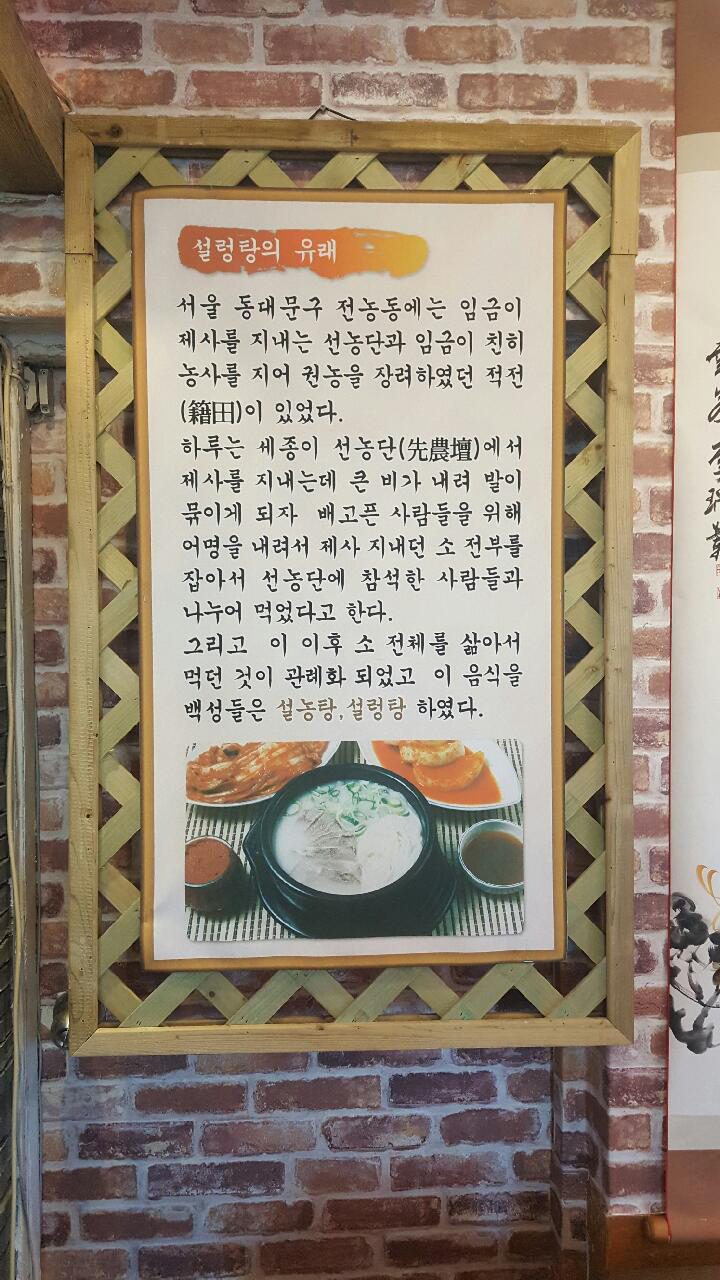 설렁탕의 유래
서울 동대문구 전농동에는 임금이
제사를 지내는 선농단과 임금이 친히
농사를 지어 권농을 장려하였던 적전
(籍田)이 있었다.
하루는 세종이 선농단(先農壇)에서
제사를 지내는데 큰 비가 내려 발이
묶이게 되자 배고픈 사람들을 위해
어명을 내려서 제사 지내던 소 전부를
잡아서 선농단에 참석한 사람들과
나누어 먹었다고 한다.
그리고 이 이후 소 전체를 삶아서
먹던 것이 관례화 되었고 이 음식을
백성들은 설농탕,설렁탕 하였다.